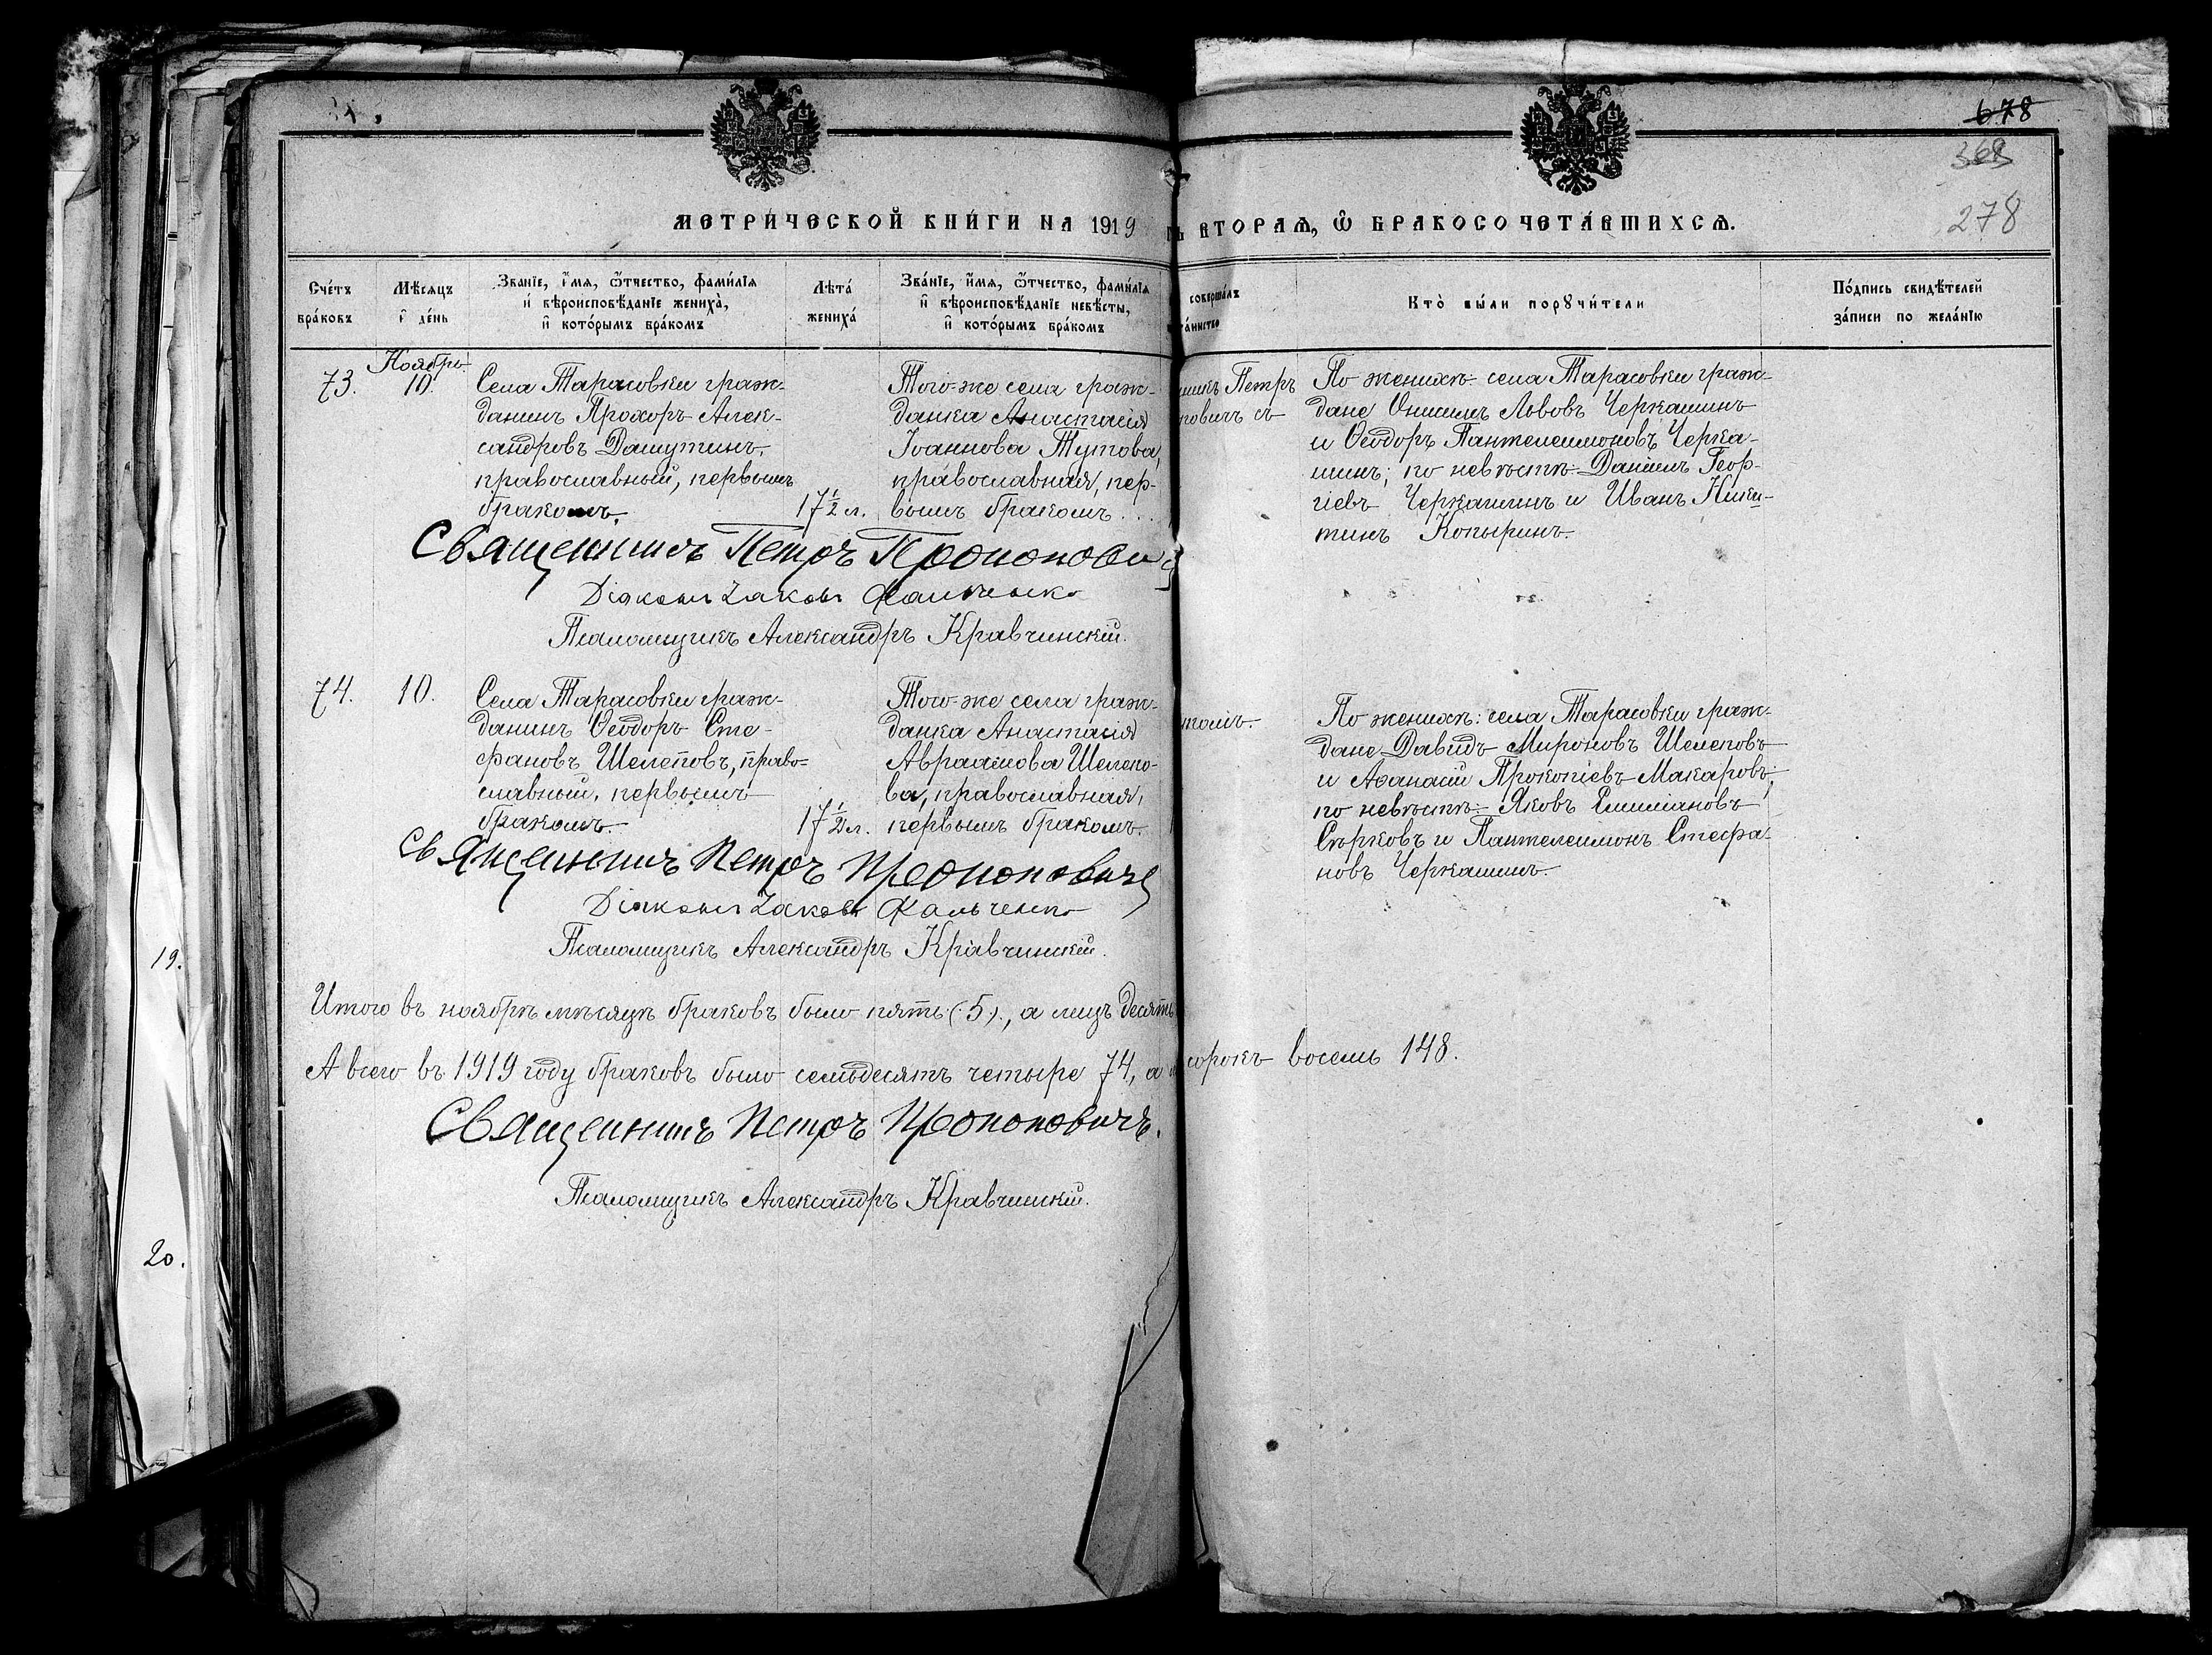 678
369
278
МЕТРИЧЕСКОЙ КНИГИ НА 1919
ВТОРАЯ, Ѿ БРАКОСОЧЕТАВШИХСЯ.
Счетъ браковъ
Мѣсяцъ и день
Званіе, имя, ѿтчество, фамилія и вѣроисповѣданіе жениха, и которымъ бракомъ
Лѣта жениха
Званіе, имя, ѿтчество, фамилія и вѣроисповѣданіе невѣсты, и которымъ бракомъ
совершалъ
таинство
Кто были поручители
Подпись свидѣтелей записи по желанію
73.
Ноябрь
10.
Села Тарасовки граж-
данинъ Прохоръ Алек-
сандровъ Дашутинъ,
православный, первымъ
бракомъ.
17 ½ л.
Того-же села граж-
данка Анастасія
Іоаннова Тутова,
православная, пер-
вымъ бракомъ
Петръ
съ
По женихѣ: села Тарасовки граж-
дане Онисимъ Львовъ Черкашинъ
и Ѳеодоръ Пантелеимоновъ Черка-
шинъ; по невѣстѣ: Даніилъ Геор-
гіевъ Черкашинъ и Иванъ Ники-
тинъ Копыринъ.
Священникъ Петръ Прокопович
Діаконъ Іаковъ Фальченко
Псаломщикъ Александръ Кравчинскій.
74.
10.
Села Тарасовки граж-
данинъ Ѳеодоръ Сте-
фановъ Шелеповъ, право-
славный, первымъ
бракомъ.
17 ½ л.
Того-же села граж-
данка Анастасія
Авраамова Шелепо-
ва, православная,
первымъ бракомъ.
По женихѣ: села Тарасовки граж-
дане Давидъ Мироновъ Шелеповъ
и Аѳанасій Прокопіевъ Макаровъ;
по невѣстѣ: Яковъ Емиліановъ
Сѣрковъ и Пантелеимонъ Стефа-
новъ Черкашинъ.
Священникъ Петръ Прокоповичъ
Діаконъ Іаковъ Фальченко
Псаломщикъ Александръ Кравчинскій.
Итого въ ноябрѣ мѣсяцѣ браковъ было пять (5), а лицъ десять
А всего въ 1919 году браковъ было семьдесятъ четыре 74, а
сорокъ восемь 148.
Священникъ Петръ Прокоповичъ.
Псаломщикъ Александръ Кравчинскій.
19.
20.